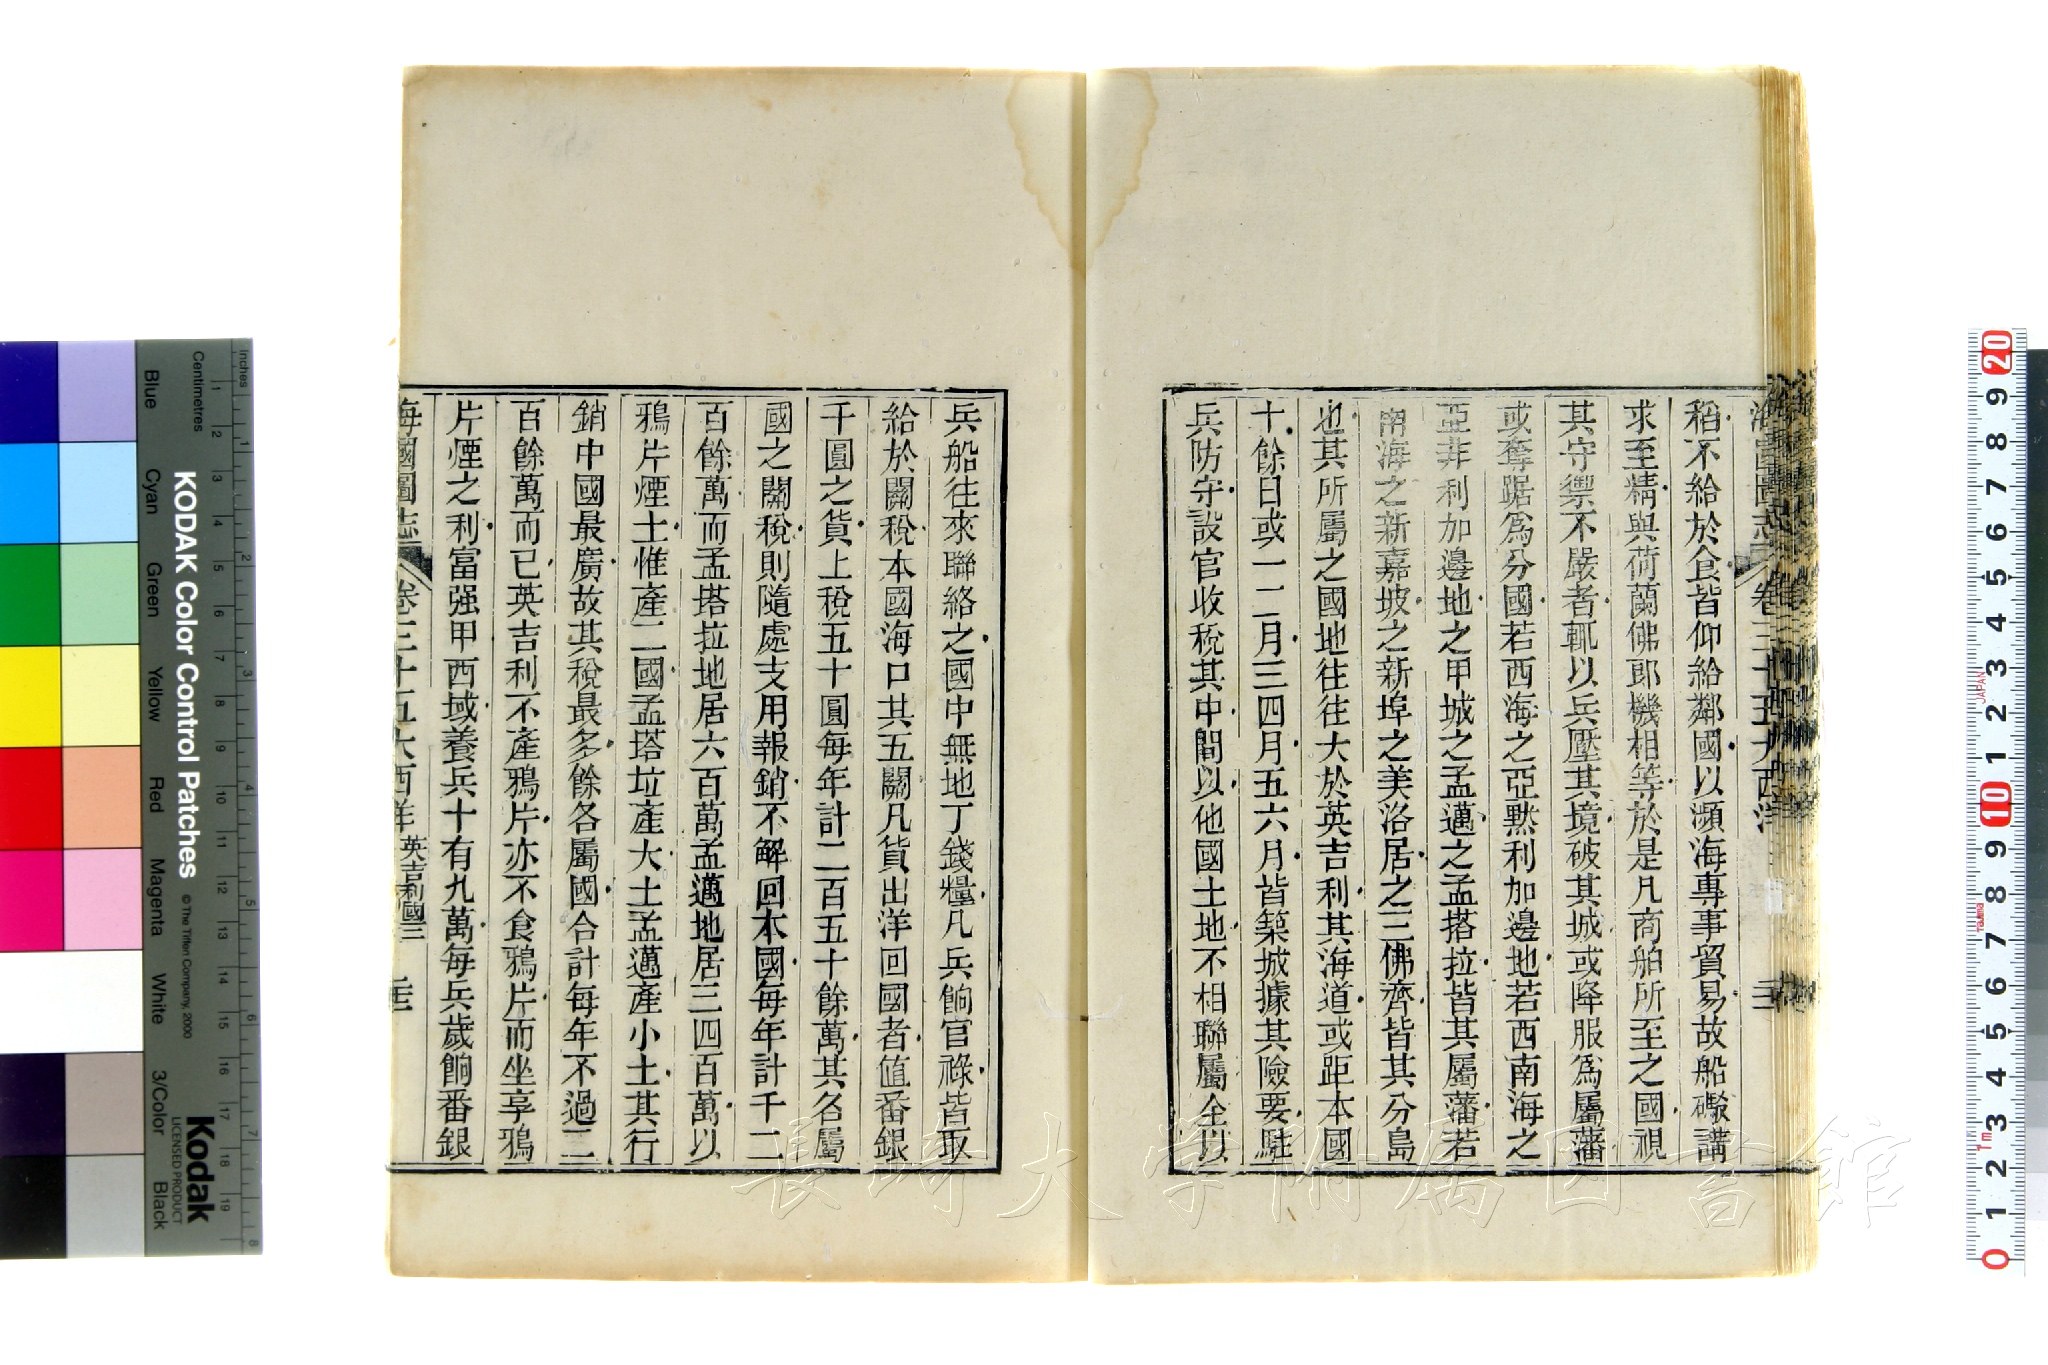 稻不給於食皆仰給鄰國以瀕海專事貿易故船礮講
求至精與荷蘭佛郎機相等於是凡商舶所至之國視
其守禦不嚴者輒以兵壓其境破其城或降服爲屬藩
或奪踞爲分國若西海之亞黙利加邊地若西南海之
亞非利加邊地之甲城之孟邁之孟搭拉皆其屬藩若
南海之新嘉坡之新埠之美洛居之三佛齊皆其分島
也其所屬之國地往往大於英吉利其海道或距本國
十餘日或一二月三四月五六月皆築城據其險要駐
兵防守設官收稅其中間以他國土地不相聯屬全以
兵船往來聯絡之國中無地丁錢糧凡兵餉官祿皆取
給於關稅本國海口其五關凡貨出洋回國者值番銀
千圓之貨上稅五十圓每年計二百五十餘萬其各屬
國之關稅則隨處支用報銷不解回本國每年計千二
百餘萬而孟塔拉地居六百萬孟邁地居三四百萬以
鴉片煙土惟產二國孟塔垃產大土孟邁產小土其行
銷中國最廣故其稅最多餘各屬國合計每年不過三
百餘萬而已英吉利不產鴉片亦不食鴉片而坐享鴉
片煙之利富强甲西域養兵十有九萬每兵歲餉番銀
海國圖志 卷三十五大西洋 英吉利國三
KODAK Color Control Patches
© The Tiffen Company, 2000
Kodak
LICENSED PRODUCT
Inches
Centimetres
Blue Cyan Green Yellow Red Magenta White 3/Color Black
1 2 3 4 5 6 7 8 9 10 11 12 13 14 15 16 17 18 19
1 2 3 4 5 6 7 8
20 9 8 7 6 5 4 3 2 1 10 9 8 7 6 5 4 3 2 1 0
JAPAN
1m
長崎大学附属図書館